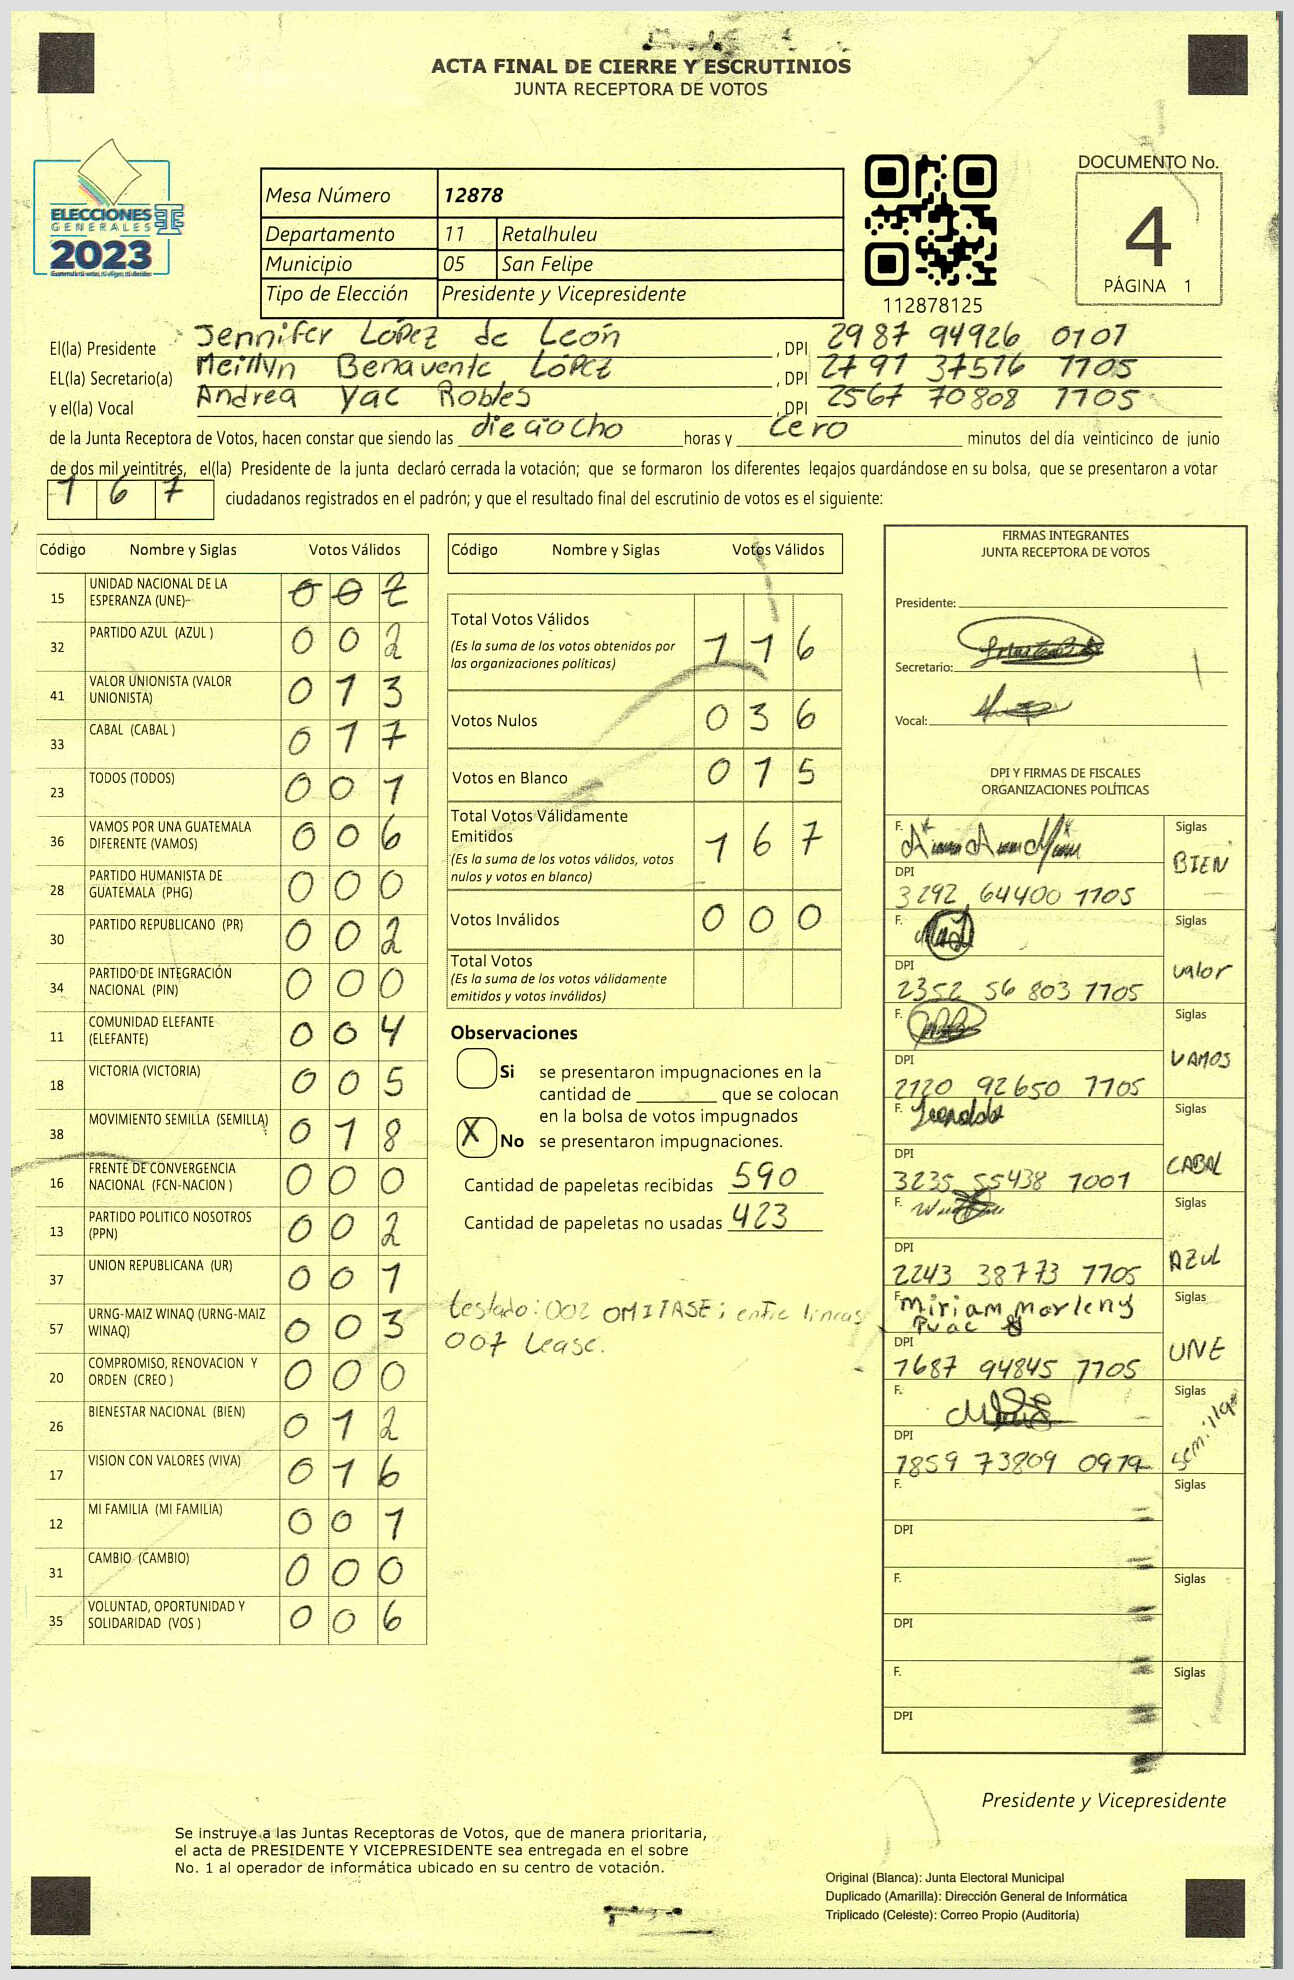 ACTA FINAL DE CIERRE Y ESCRUTINIOS
JUNTA RECEPTORA DE VOTOS
ELECCIONES
GENERALES
2023
Mesa Número 12878
Departamento 11 Retalhuleu
Municipio 05 San Felipe
Tipo de Elección Presidente y Vicepresidente
112878125
DOCUMENTO No.
4
PÁGINA 1
El(la) Presidente Jennifer López de León , DPI 2987 94926 0101
EL(la) Secretario(a) Meillyn Benavente López , DPI 2791 37576 1105
y el(la) Vocal Andrea Yac Robles , DPI 2567 70808 1105
de la Junta Receptora de Votos, hacen constar que siendo las dieciocho horas y cero minutos del día veinticinco de junio
de dos mil veintitrés, el(la) Presidente de la junta declaró cerrada la votación; que se formaron los diferentes legajos guardándose en su bolsa, que se presentaron a votar
167 ciudadanos registrados en el padrón; y que el resultado final del escrutinio de votos es el siguiente:
Código Nombre y Siglas Votos Válidos
15 UNIDAD NACIONAL DE LA ESPERANZA (UNE) 002
32 PARTIDO AZUL (AZUL ) 002
41 VALOR UNIONISTA (VALOR UNIONISTA) 013
33 CABAL (CABAL ) 017
23 TODOS (TODOS) 001
36 VAMOS POR UNA GUATEMALA DIFERENTE (VAMOS) 006
28 PARTIDO HUMANISTA DE GUATEMALA (PHG) 000
30 PARTIDO REPUBLICANO (PR) 002
34 PARTIDO DE INTEGRACIÓN NACIONAL (PIN) 000
11 COMUNIDAD ELEFANTE (ELEFANTE) 004
18 VICTORIA (VICTORIA) 005
38 MOVIMIENTO SEMILLA (SEMILLA) 018
16 FRENTE DE CONVERGENCIA NACIONAL (FCN-NACION ) 000
13 PARTIDO POLITICO NOSOTROS (PPN) 002
37 UNION REPUBLICANA (UR) 001
57 URNG-MAIZ WINAQ (URNG-MAIZ WINAQ) 003
20 COMPROMISO, RENOVACION Y ORDEN (CREO ) 000
26 BIENESTAR NACIONAL (BIEN) 012
17 VISION CON VALORES (VIVA) 016
12 MI FAMILIA (MI FAMILIA) 001
31 CAMBIO (CAMBIO) 000
35 VOLUNTAD, OPORTUNIDAD Y SOLIDARIDAD (VOS ) 006
Código Nombre y Siglas Votos Válidos
Total Votos Válidos 116
(Es la suma de los votos obtenidos por
las organizaciones políticas)
Votos Nulos 036
Votos en Blanco 015
Total Votos Válidamente
Emitidos 167
(Es la suma de los votos válidos, votos
nulos y votos en blanco)
Votos Inválidos 000
Total Votos
(Es la suma de los votos válidamente
emitidos y votos inválidos)
Observaciones
Si se presentaron impugnaciones en la
cantidad de que se colocan
en la bolsa de votos impugnados
X No se presentaron impugnaciones.
Cantidad de papeletas recibidas 590
Cantidad de papeletas no usadas 423
testado: 002 OMITASE; entre lineas
007 Lease.
FIRMAS INTEGRANTES
JUNTA RECEPTORA DE VOTOS
Presidente:
Secretario:
Vocal:
DPI Y FIRMAS DE FISCALES
ORGANIZACIONES POLÍTICAS
F. Siglas BIEN
DPI 3292 64400 1105
F. Siglas Valor
DPI 2352 56 803 1105
F. Siglas VAMOS
DPI 2120 92650 1105
F. Siglas CABAL
DPI 3235 55438 1001
F. Siglas AZUL
DPI 2243 38773 1105
F. Miriam Marleny Siglas UNE
Puac
DPI 1687 94845 1105
F. Siglas Semilla
DPI 1859 73809 0919
F. Siglas
DPI
F. Siglas
DPI
F. Siglas
DPI
Presidente y Vicepresidente
Se instruye a las Juntas Receptoras de Votos, que de manera prioritaria,
el acta de PRESIDENTE Y VICEPRESIDENTE sea entregada en el sobre
No. 1 al operador de informática ubicado en su centro de votación.
Original (Blanca): Junta Electoral Municipal
Duplicado (Amarilla): Dirección General de Informática
Triplicado (Celeste): Correo Propio (Auditoría)